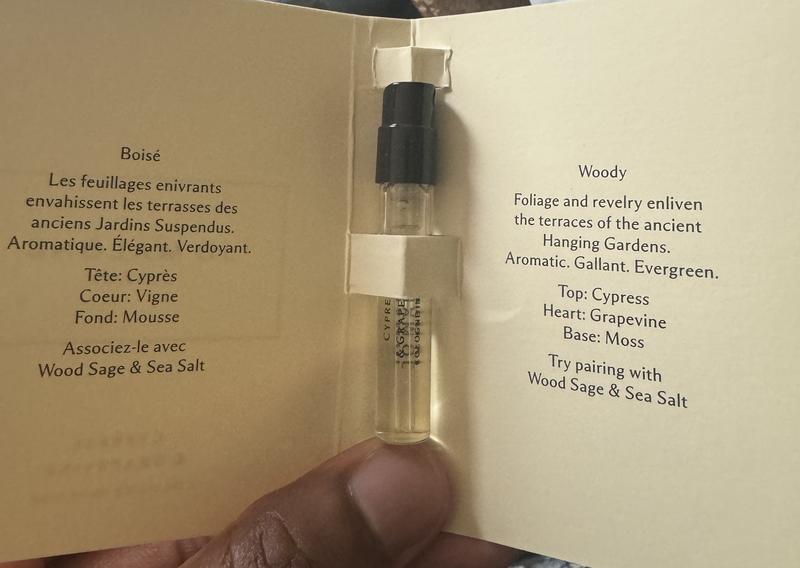 Boisé
Les feuillages enivrants
envahissent les terrasses des
anciens Jardins Suspendus.
Aromatique. Élégant. Verdoyant.
Tête: Cyprès
Coeur: Vigne
Fond: Mousse
Associez-le avec
Wood Sage & Sea Salt
CYPRE
& GRAPE
Woody
Foliage and revelry enliven
the terraces of the ancient
Hanging Gardens.
Aromatic. Gallant. Evergreen.
Top: Cypress
Heart: Grapevine
Base: Moss
Try pairing with
Wood Sage & Sea Salt